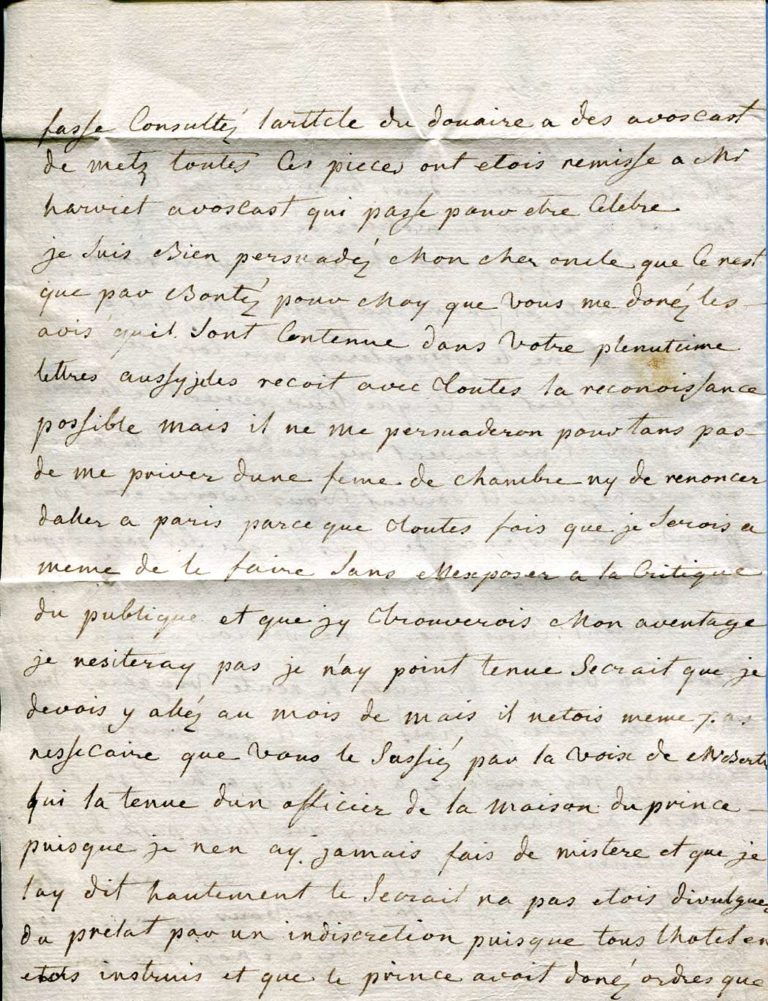 fasse Consultéz larticle du douaire a des avoscast
de metz toutes Ces pieces ont etois remisse a Mr
harviet avoscast qui passe pour etre Celebre
je suis Bien persuadéz Mon cher oncle que Ce nest
que par Bontéz pour Moy que vous me donéz les
avis quil sont Contenue dans votre
lettres aussy jeles recoit avec toutes la reconoissance
possible mais il ne me persuaderon pour tans pas
de me priver dune feme de chambre ny de renoncer
daller a paris parce que toutes fois que je serois a
meme de le faire sans Mexposer a la Critique
du publique et que jy trouverois Mon aventage
je nesiteray pas je n'ay point tenue Secrait que je
devois y alléz au mois de mais il netois meme pas
nessecaire que vous le Sussiéz par la voix de
qui la tenue dun officier de la maison du prince
puisque je nen ay jamais fais de mistere et que je
lay dit hautement le Secrait na pas etois divulguez
du prelat par un indiscretion puisque tous lhotel en
etois instruis et que le prince avait donéz ordres que